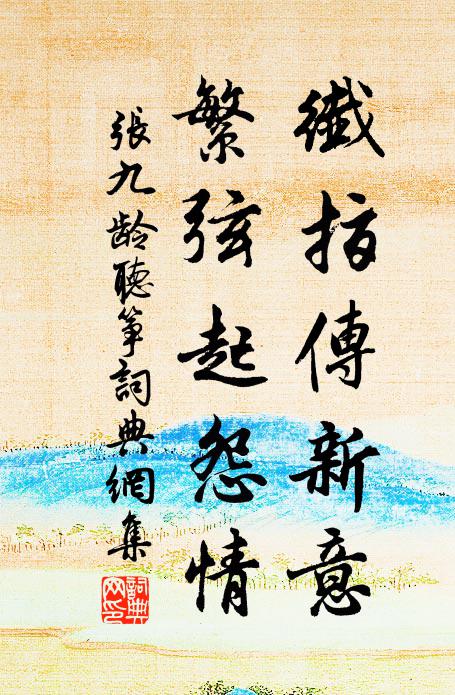 纖指傳新意
繁弦起怨情
張九齡聽箏詞典網集